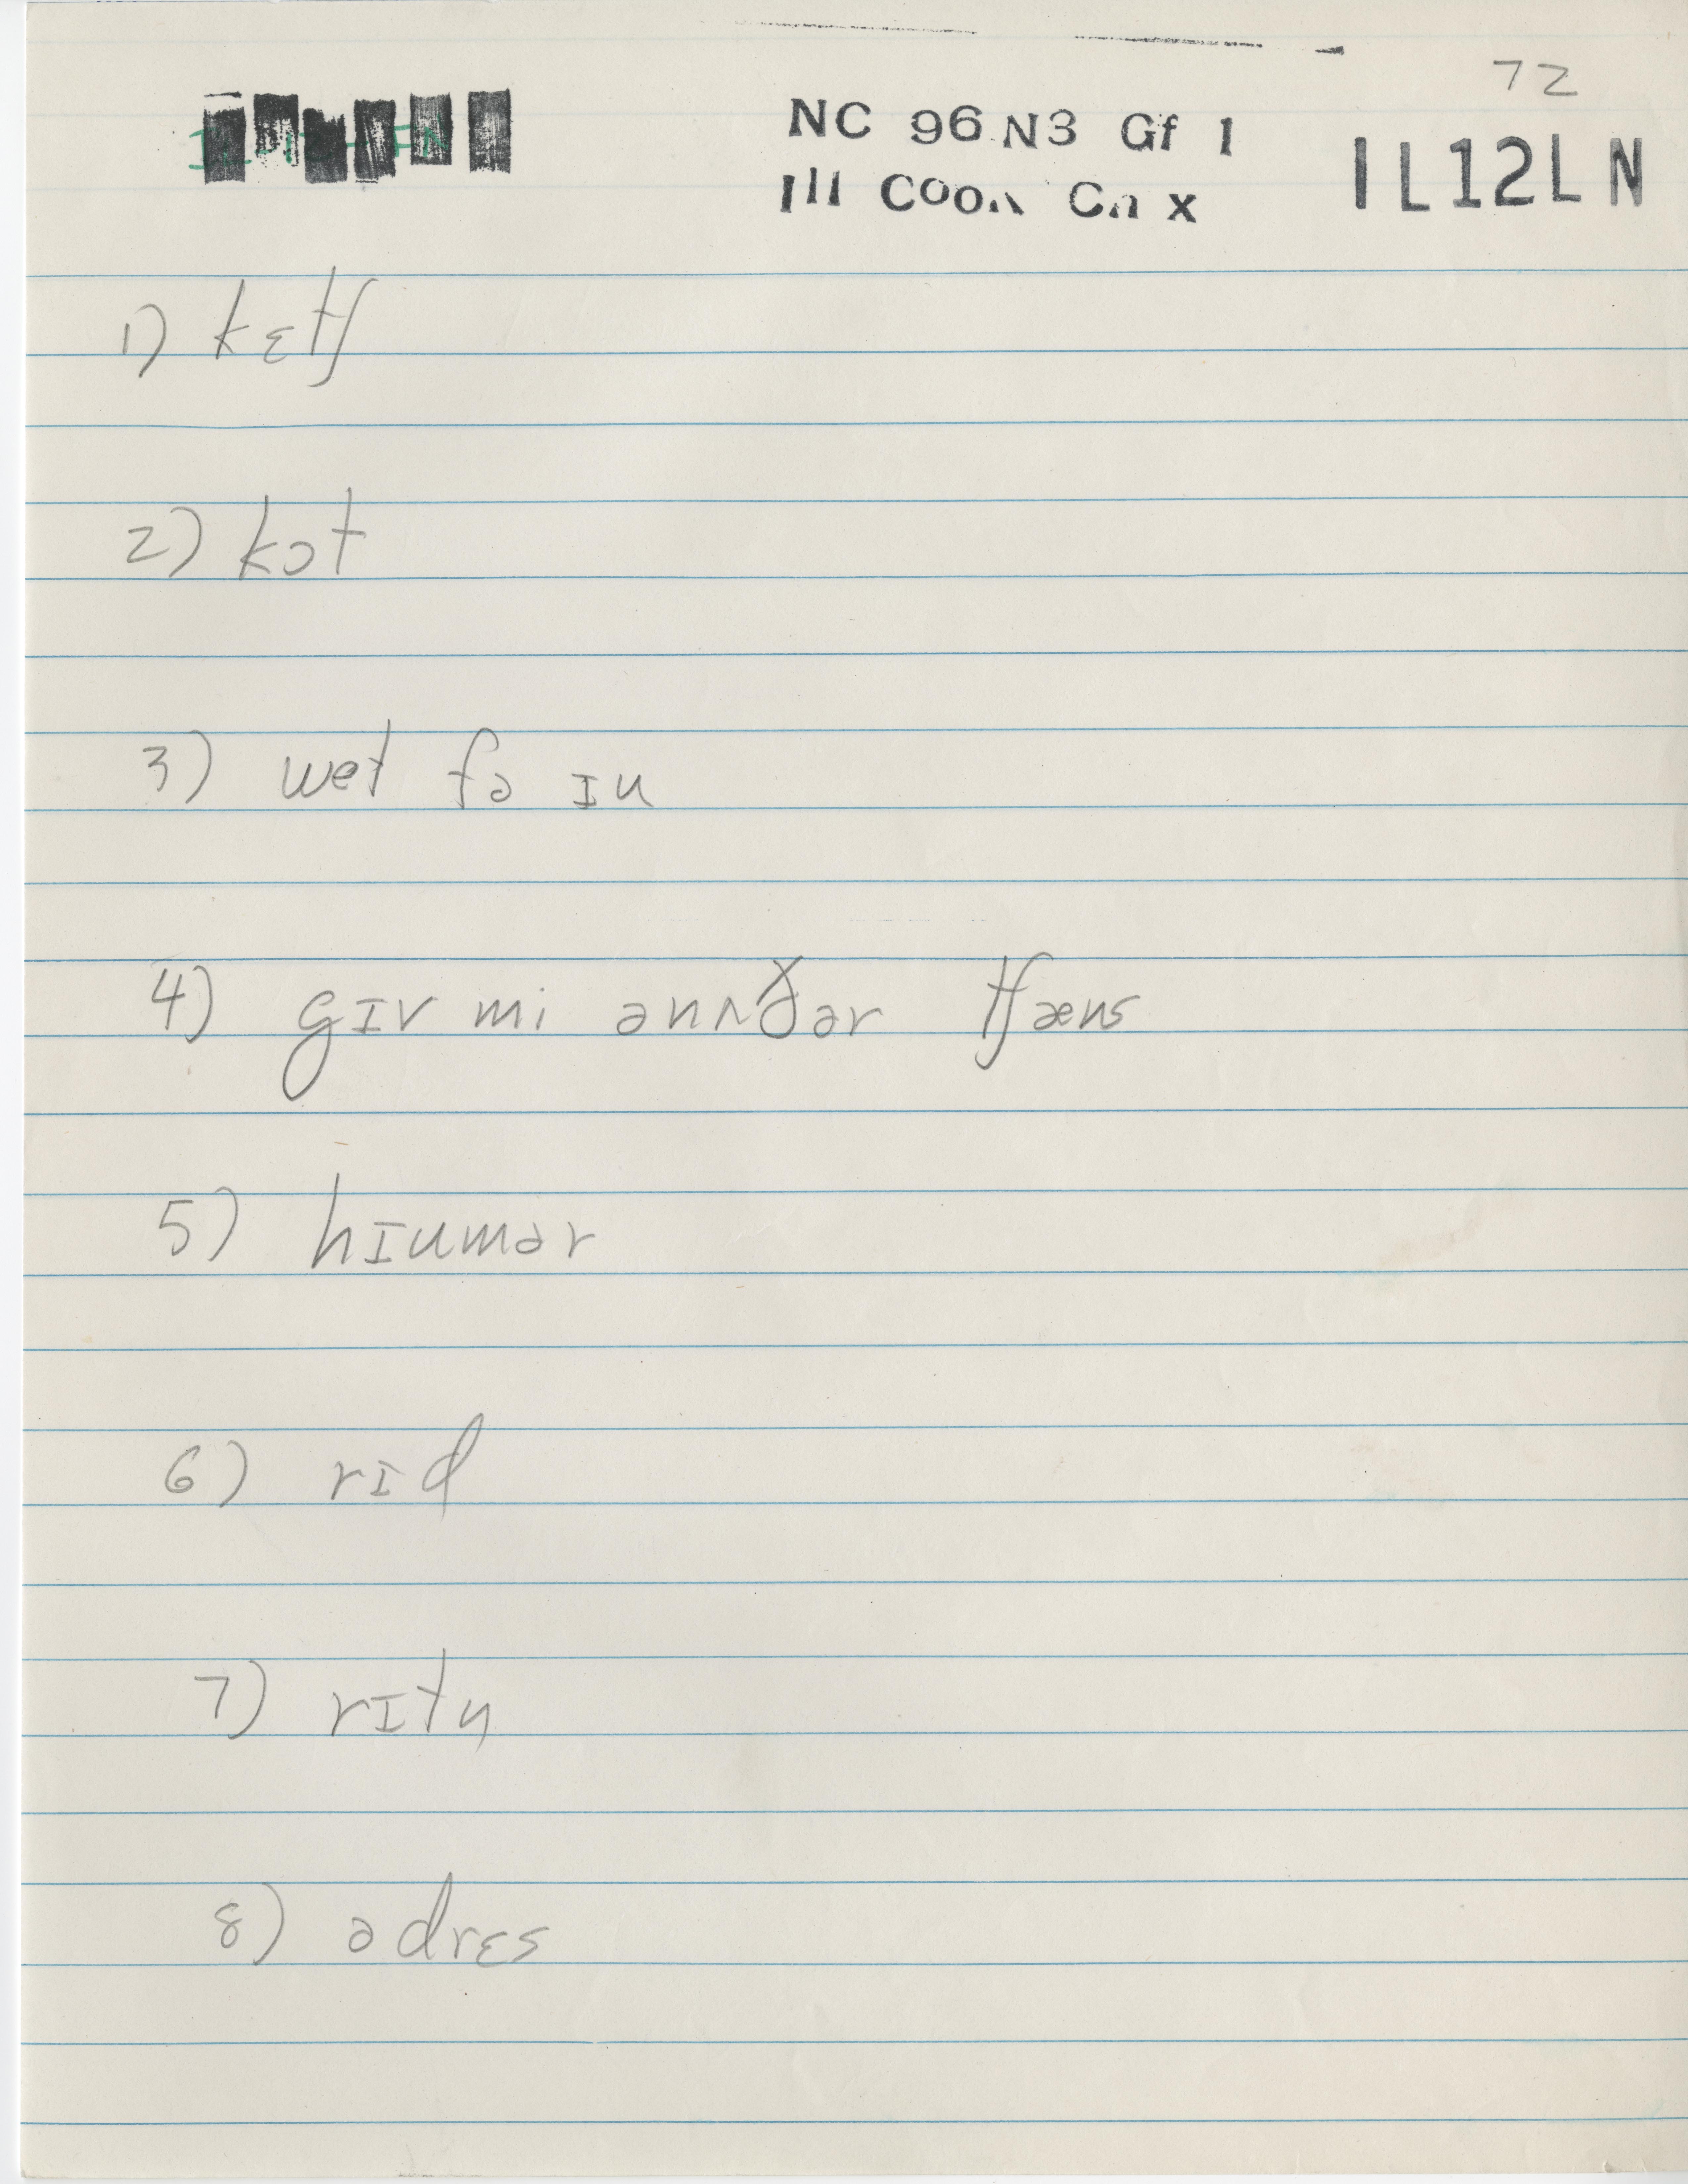 72
NC 96 N3 Gf 1
IL12LN
Ill
1) kɛtʃ
2) kɔt
3) wet fə ɪu
4) gɪv mi ənʌðər tʃæns
5) hɪumər
6) rɪd
7) rɪtn̩
8) ədrɛs